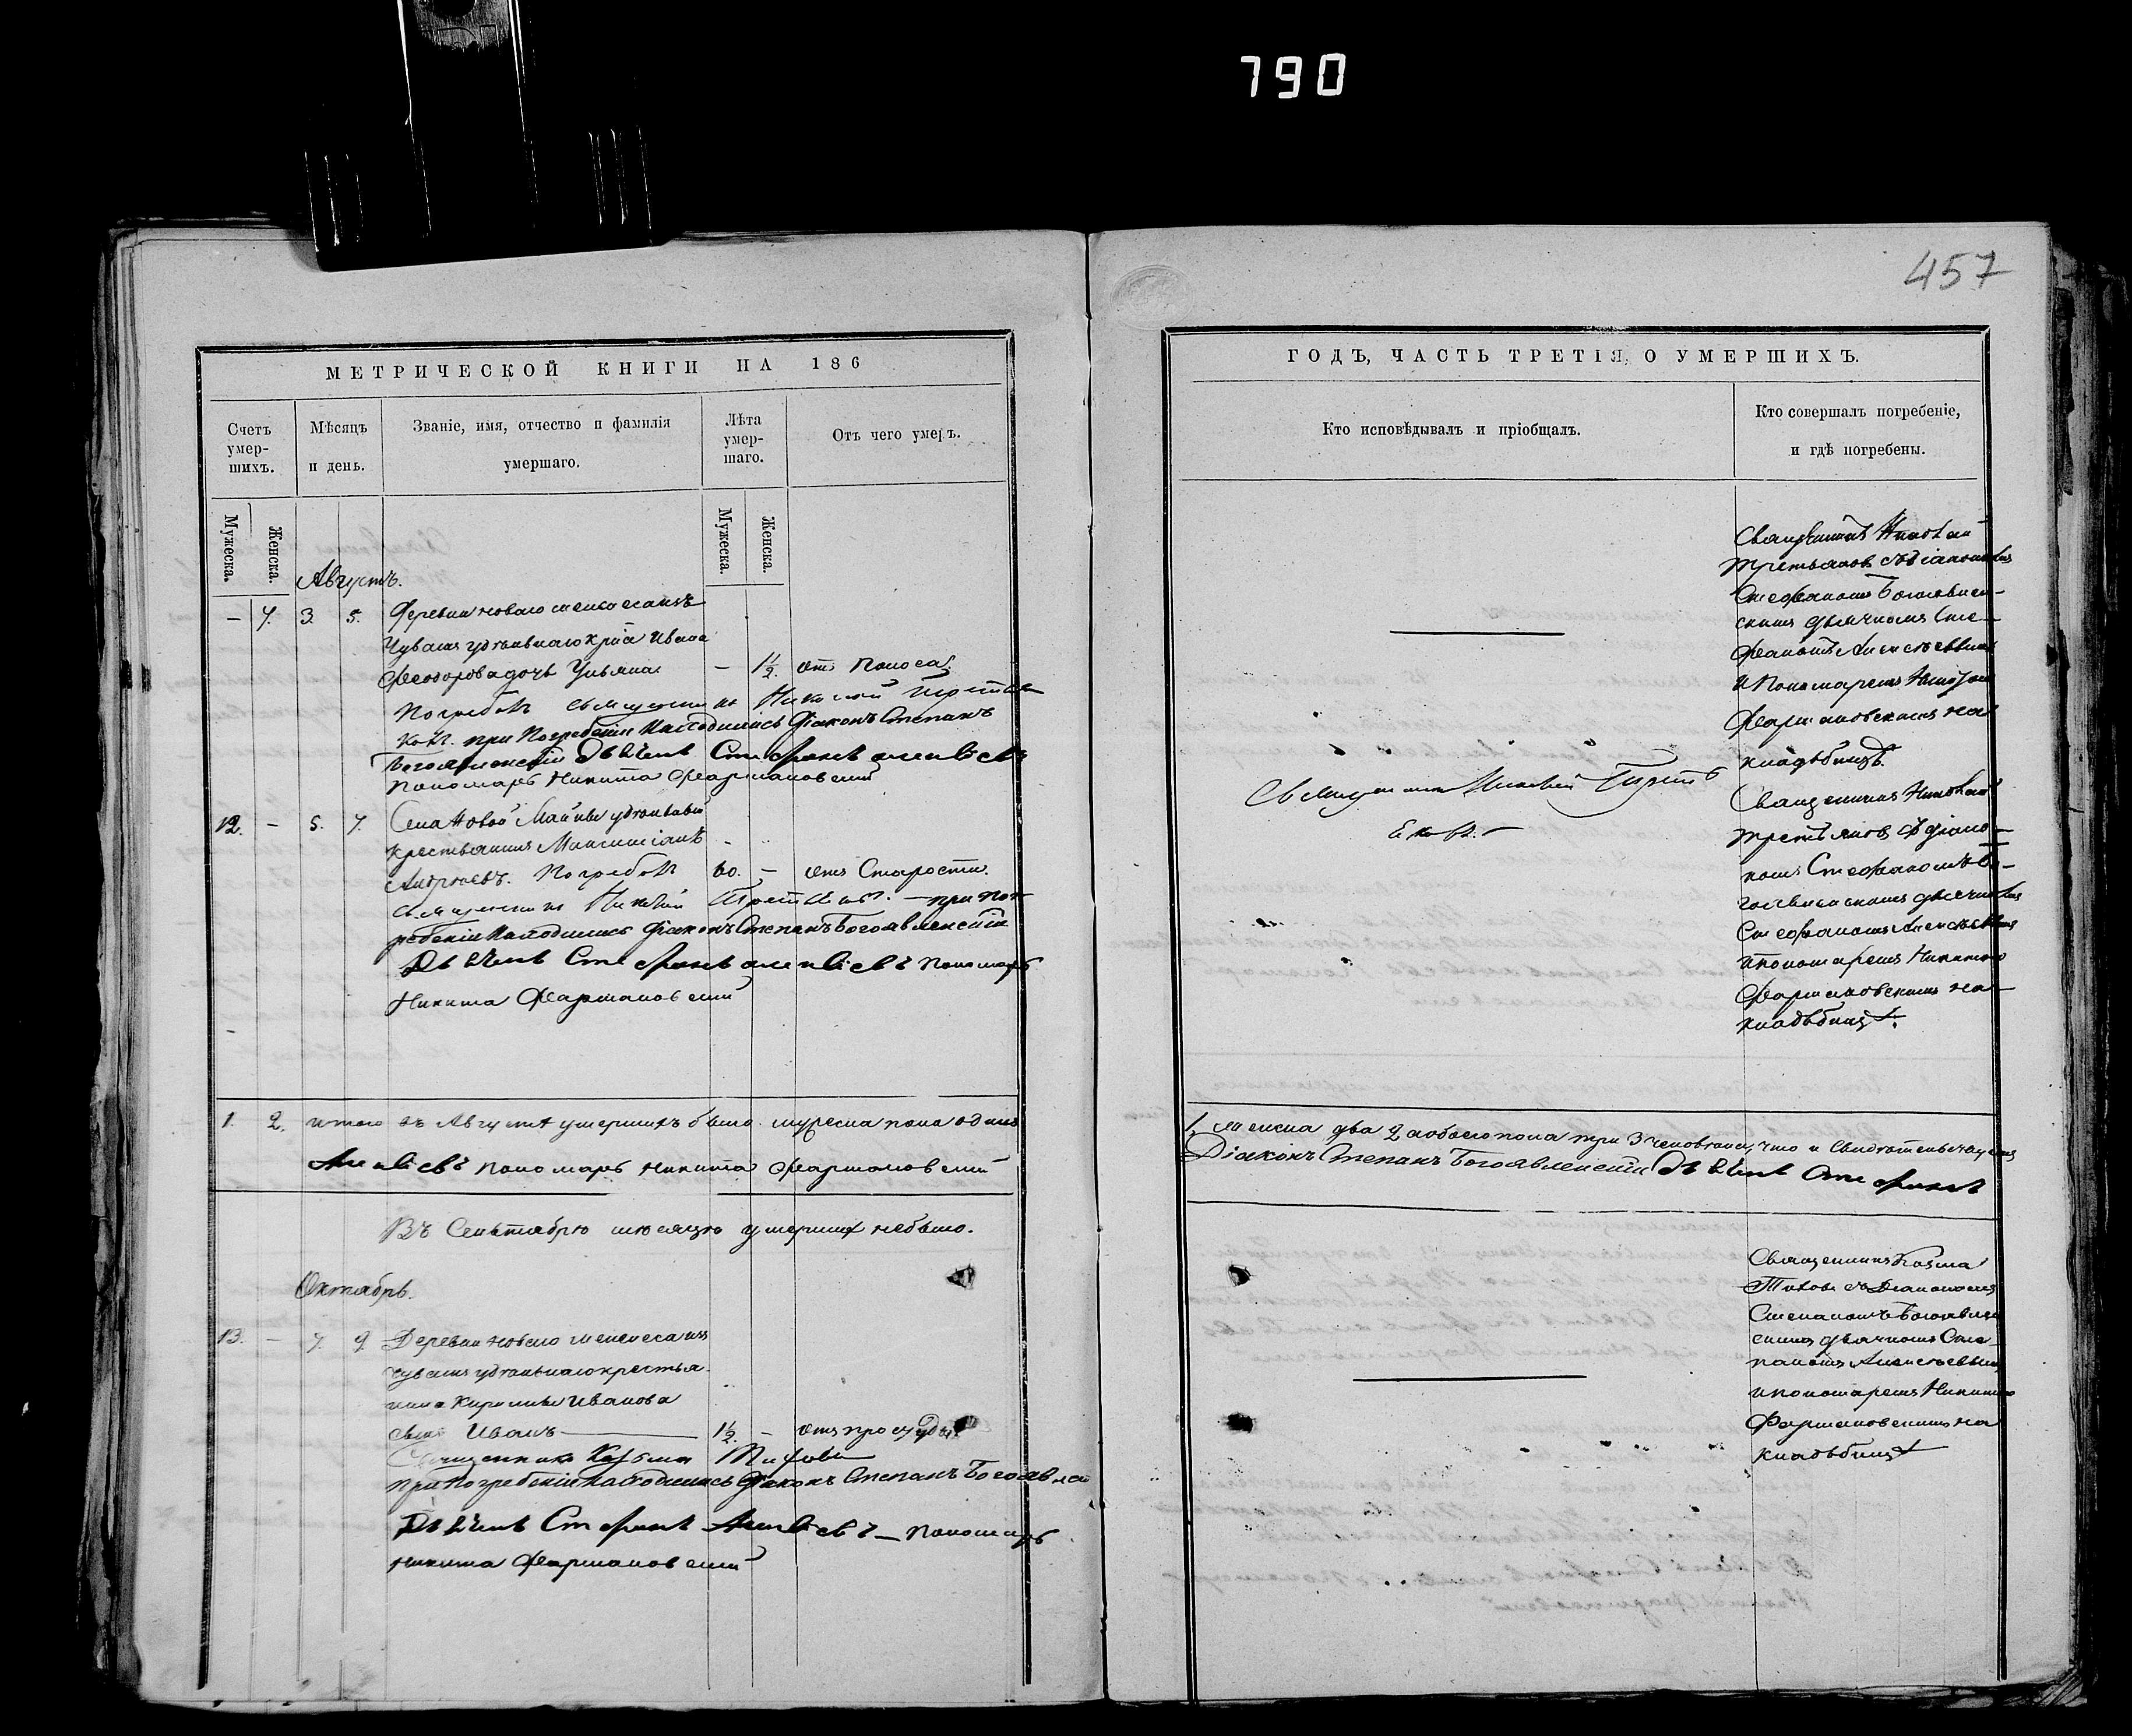 790
457
МЕТРИЧЕСКОЙ КНИГИ НА 186
Счетъ умер-шихъ.
Мѣсяцъ и день.
Званіе, имя, отчество и фамилія умершаго.
Лѣта умер-шаго.
Отъ чего умеръ.
Мужеска.
Женска.
Мужеска.
Женска.
Августъ.
– 7. 3. 5. Деревни Новаго
Чувашъ удѣльнаго кр–на Ивана
Феодорова дочь Ульяна – 1½. отъ Поноса.
Погребалъ священникъ Николай Третья
ковъ. при Погребеніи Находились Діаконъ Степанъ
Богоявленскій Дьячекъ Стефанъ Алексѣевъ
Пономарь Никита Фармаковскій
12. – 5. 7. Села Новой Майны удѣльный
крестьянинъ Максимъ
Андреевъ. Погребалъ 60. – отъ Старости.
священникъ Николай Третьяковъ. – при пог
ребеніи Находились Діаконъ Степанъ Богоявленскій
Дьячекъ Стефанъ Алексѣевъ Пономарь
Никита Фармаковскій
1. 2. итого въ Августѣ умершихъ было мужеска пола одинъ
Алексѣевъ Пономарь Никита Фармаковскій
Въ Сентябрѣ мѣсяцѣ умершихъ небыло.
Октябрь.
13. – 7. 9 Деревни Новаго
чувашъ удѣльнаго крестья
нина Кирилы Иванова
сынъ Иванъ 1½. – отъ простуды
Священникъ Козьма Титовъ
при Погребеніи Находились Діаконъ Степанъ Богоявлен
Дьячекъ Стефанъ Алексѣевъ – Пономарь
Никита Фармаковскій
ГОДЪ, ЧАСТЬ ТРЕТІЯ, О УМЕРШИХЪ.
Кто исповѣдывалъ и пріобщалъ.
Кто совершалъ погребеніе,
и гдѣ погребены.
Священникъ Николай
Третьяковъ съ діакономъ
Стефаномъ Богоявлен–
скимъ дьячкомъ Сте–
фаномъ Алексѣевымъ
и Пономаремъ Никитою
Фармаковскимъ на
кладбищѣ.
Священникъ Николай Третья
ковъ. –
Священникъ Николай
Третьяковъ съ діако–
номъ Стефаномъ Бо–
гоявленскимъ дьячкомъ
Стефаномъ Алексѣевымъ
и пономаремъ Никитою
Фармаковскимъ на
кладбищѣ.
1, женска два 2 а обоего пола три 3 человѣка, что и свидѣтельствуемъ
Діаконъ Степанъ Богоявленскій Дьячекъ Стефанъ
Священникъ Козма
Титовъ съ Діакономъ
Степаномъ Богоявлен
скимъ дьячкомъ Сте–
паномъ Алексѣевымъ
и пономаремъ Никитою
Фармаковскимъ на
кладбищѣ